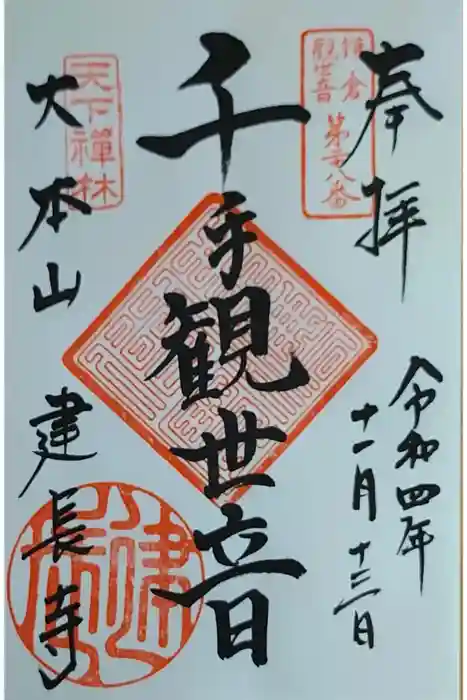 奉拝
令和四年
十一月十三日
鎌倉
観世音
第二十八番
千手観世音
天下
禪林
大本山
建長寺